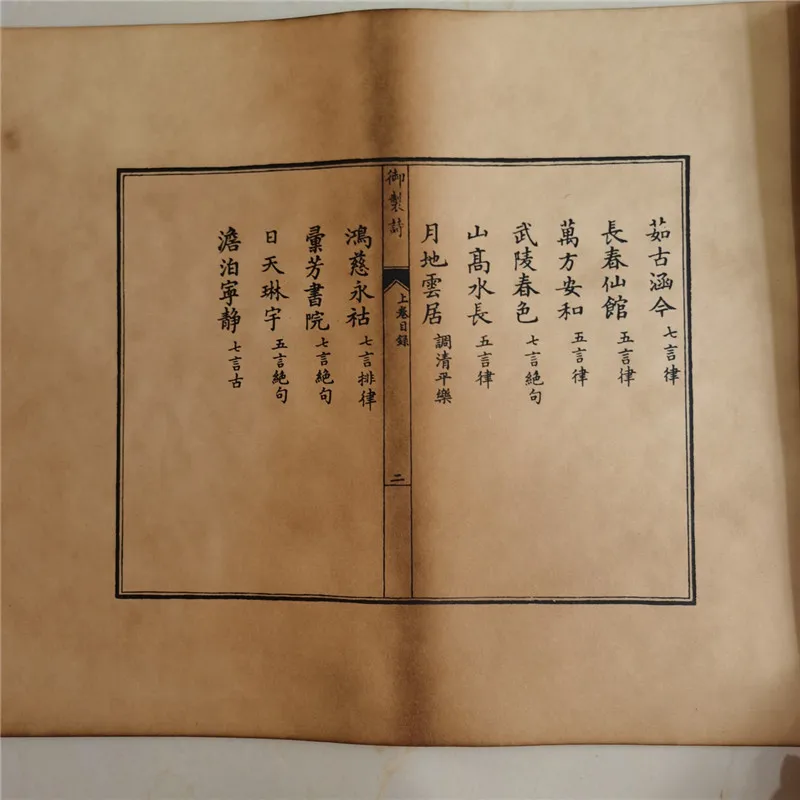 茹古涵今 七言律
長春仙館 五言律
萬方安和 五言律
武陵春色 七言絶句
山髙水長 五言律
月地雲居 調清平樂
御製詩
上卷目録
二
鴻慈永祜 七言排律
彙芳書院 七言絶句
日天琳宇 五言絶句
澹泊寧靜 七言古